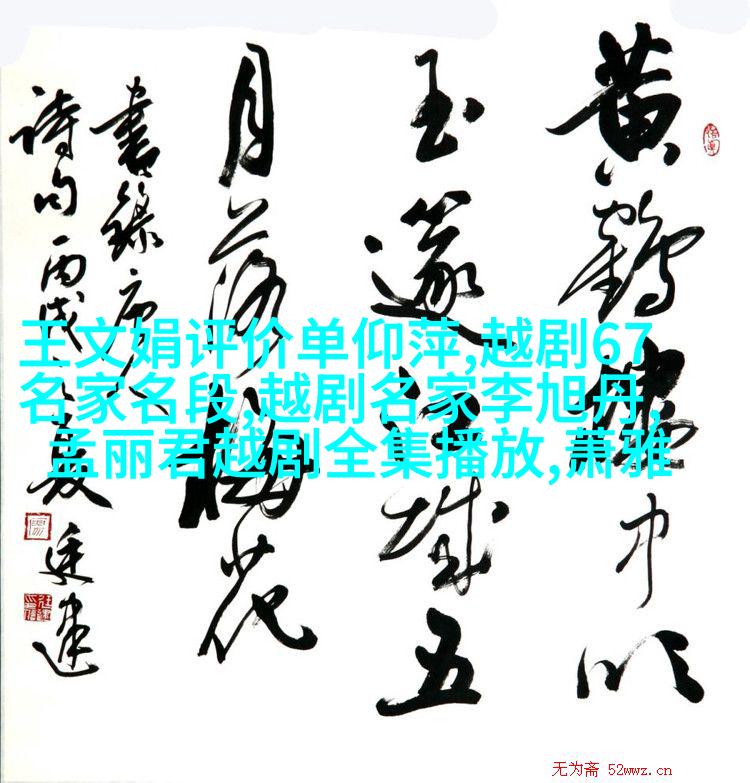 王文娟评价单仰萍,越剧67
名家名段,越剧名家李旭丹,
孟丽君越剧全集播放,萧雅
黄鶴楼中吹
玉篴江城五
月落梅花
書錄唐人
詩句丙戌夏廷建
无为斋 52wwz.cn